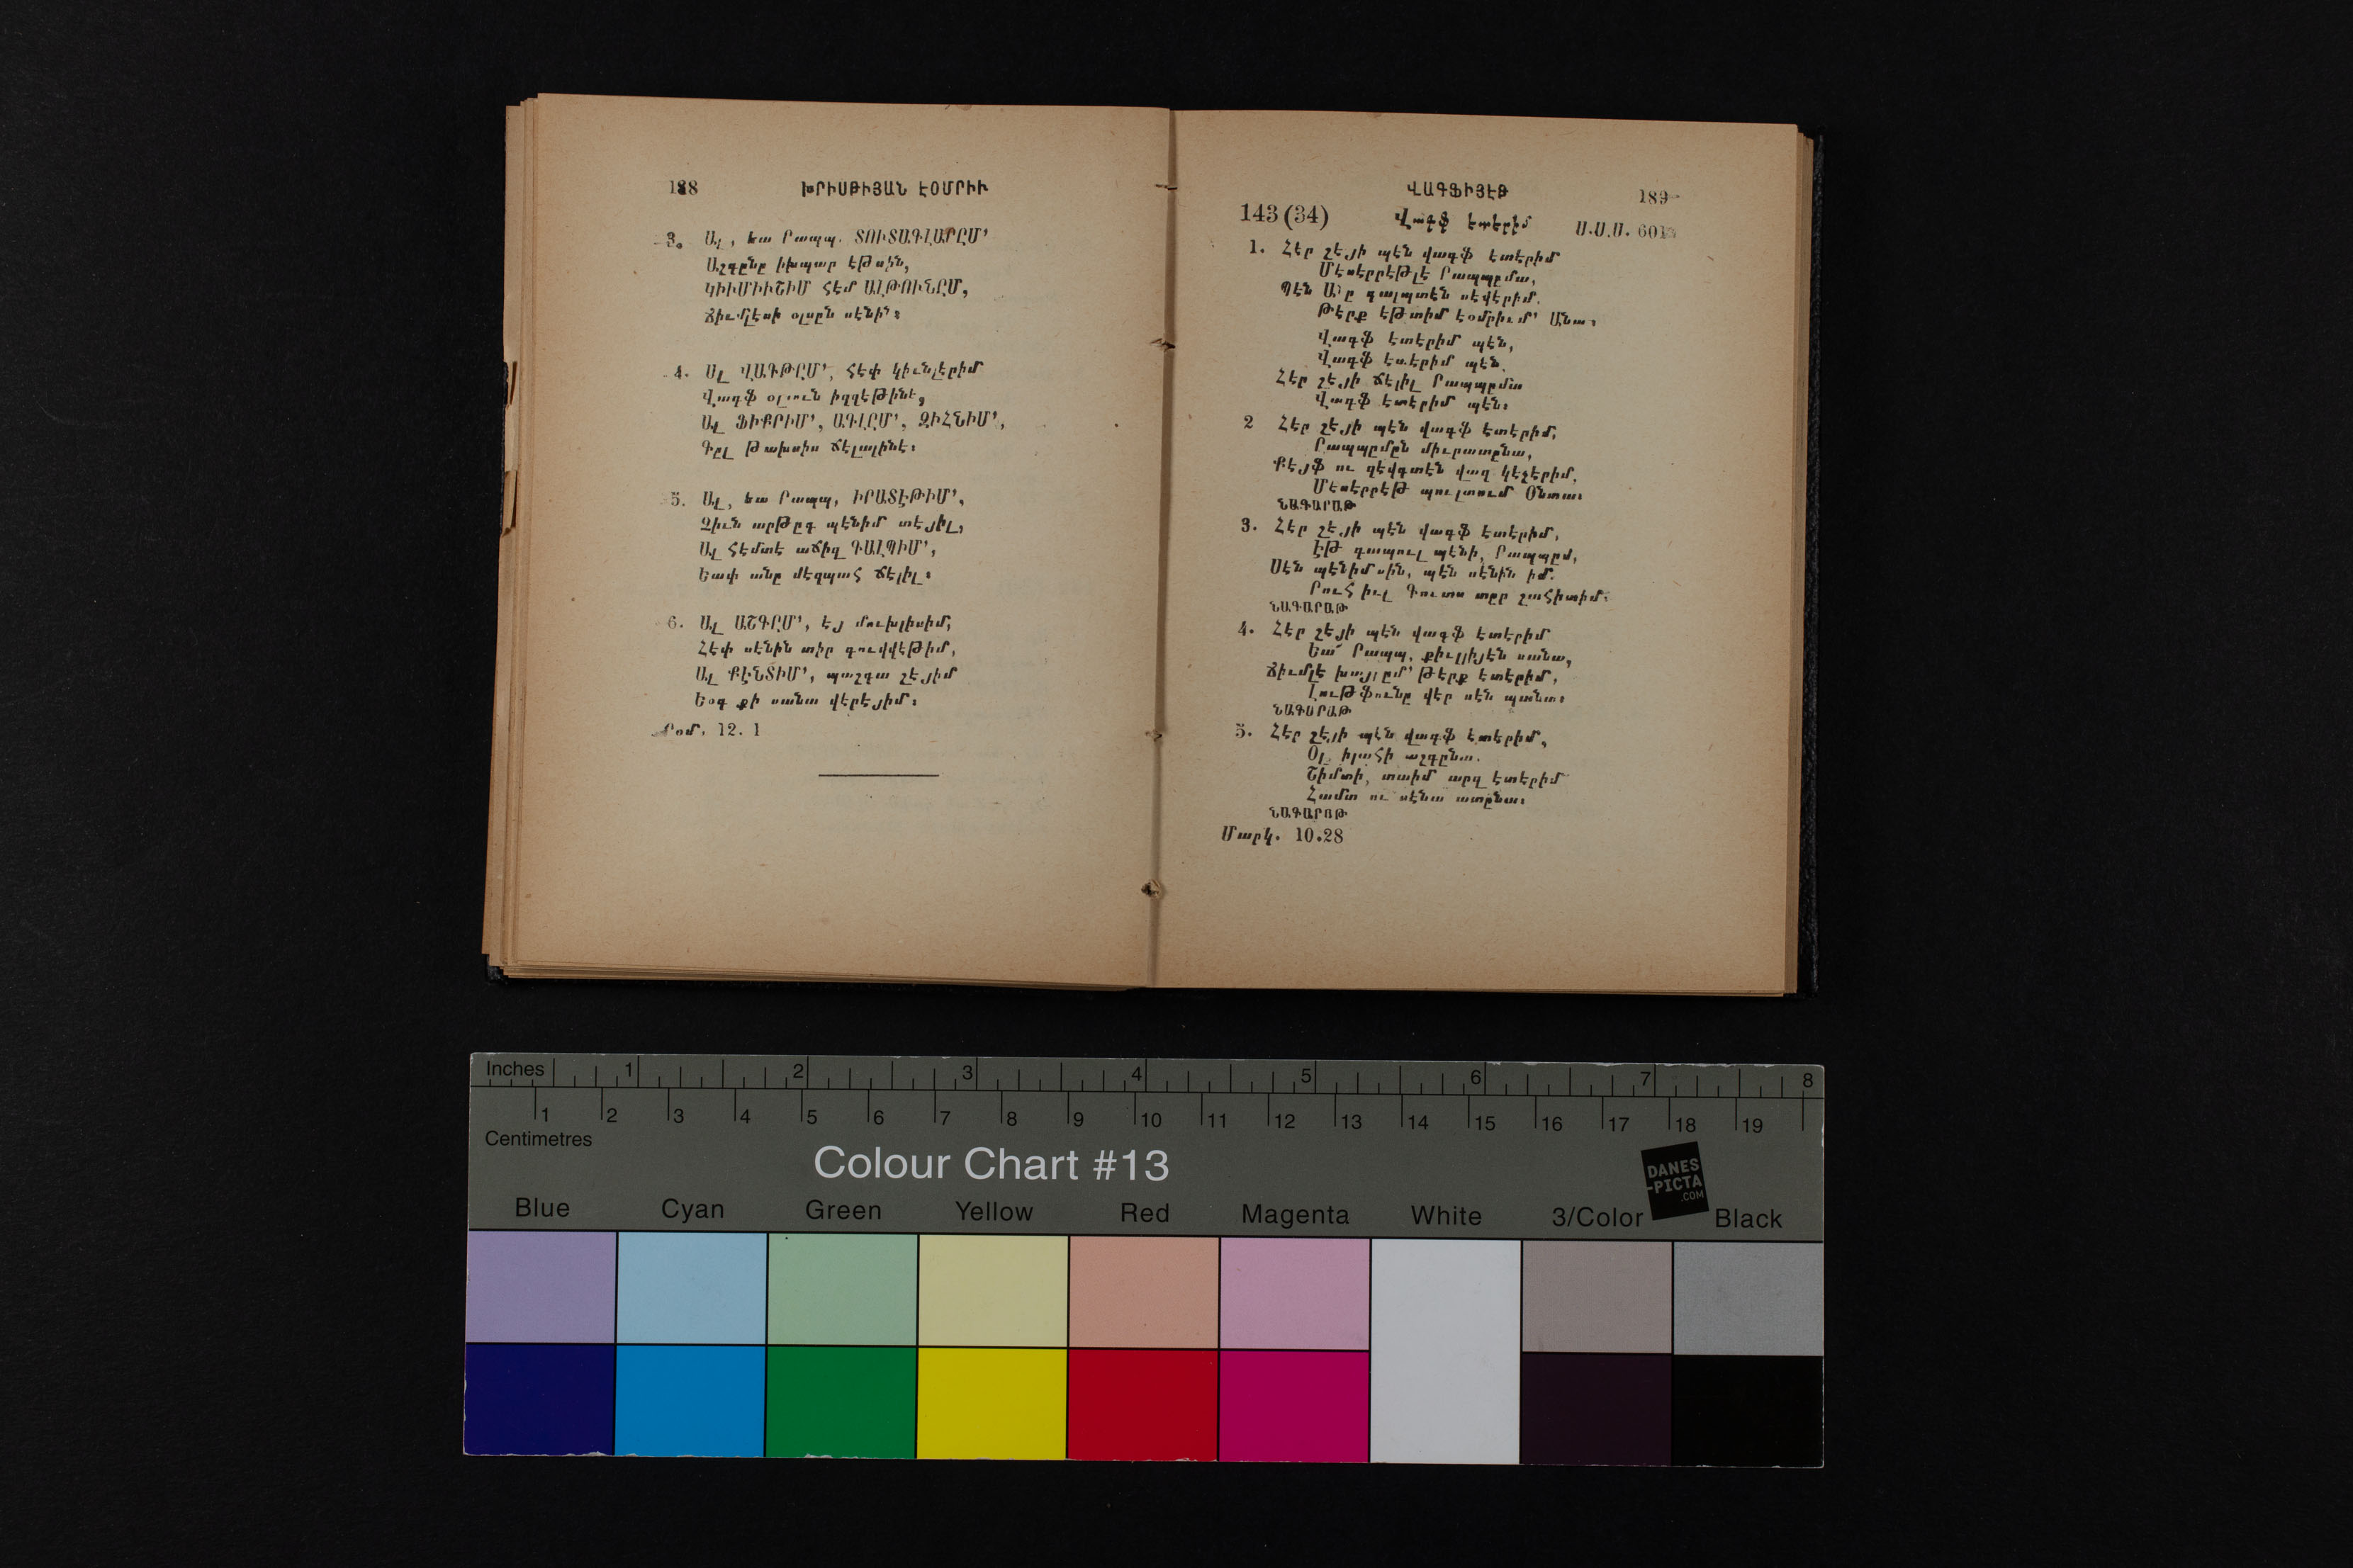 188 ԽՐԻՍԹԻՅԱՆ ԷՕՄՐԻՒ
3. Ալ, եա Րապպ. ՏՈՒՏԱԳԼԱՐԸՄ՚
Աշգընը իխպար էթսին,
ԿԻՒՄԻՒՇԻՄ հէմ ԱԼԹՈՒՆԸՄ,
Ճիւմլէսի օլսըն սէնին։
4. Ալ ՎԱԳԹԸՄ՚, հէփ կիւնլէրիմ
Վագֆ օլսուն իզզէթինէ,
Ալ ՖԻՔՐԻՄ՚, ԱԳԼԸՄ՚, ԶԻՀՆԻՄ՚,
Գըլ թախսիս ճէլալինէ։
5. Ալ, եա Րապպ, ԻՐԱՏԷԹԻՄ՚,
Զիւն արթըգ պէնիմ տէյիլ,
Ալ հէմտէ աճիզ ԳԱԼՊԻՄ՚,
Եափ անը մէզպահ ճէլիլ։
6. Ալ ԱՇԳԸՄ՚, էյ մուխլիսիմ,
Հէփ սէնին տիր գուվվէթիմ,
Ալ ՔԷՆՏԻՄ՚, պաշգա շէյիմ
Եօգ քի սանա վէրէյիմ։
Րօմ. 12. 1
ՎԱԳՖԻՅԷԹ 189
143 (34) Վագֆ էտէրիմ Ս.Ս.Ս. 601
1. Հէր շէյի պէն վագֆ էտէրիմ
Մէսէրրէթլէ Րապպըմա,
Պէն Անը գալպտէն սէվէրիմ.
Թէրք էթտիմ էօմրիւմ՚ Անա։
Վագֆ էտէրիմ պէն,
Վագֆ էտէրիմ պէն.
Հէր շէյի ճէլիլ Րապպըմա
Վագֆ էտէրիմ պէն։
2 Հէր շէյի պէն վագֆ էտէրիմ,
Րապպըմըն միւրատընա,
Քէյֆ ու զէվգտէն վազ կէչէրիմ,
Մէսէրրէթ պուլտում Օնտա։
ՆԱԳԱՐԱԹ
3. Հէր շէյի պէն վագֆ էտէրիմ,
Էթ գապուլ պէնի, Րապպըմ,
Սէն պէնիմսին, պէն սէնին իմ.
Րուհ իւլ Գուտս տըր շահիտիմ։
ՆԱԳԱՐԱԹ
4. Հէր շէյի պէն վագֆ էտէրիմ
Եա՜ Րապպ, քիւլլիյէն սանա,
Ճիւմլէ խայրըմ՚ թէրք էտէրիմ,
Լութֆունը վէր սէն պանա։
ՆԱԳԱՐԱԹ
5. Հէր շէյի պէն վագֆ էտէրիմ,
Օլ իլահի աշգընա.
Շիմտի, տաիմ արզ էտէրիմ
Համտ ու սէնա ատընա։
ՆԱԳԱՐԱԹ
Մարկ. 10.28
Inches 1 2 3 4 5 6 7 8
1 2 3 4 5 6 7 8 9 10 11 12 13 14 15 16 17 18 19
Centimetres
Colour Chart #13
DANES
-PICTA
.COM
Blue Cyan Green Yellow Red Magenta White 3/Color Black